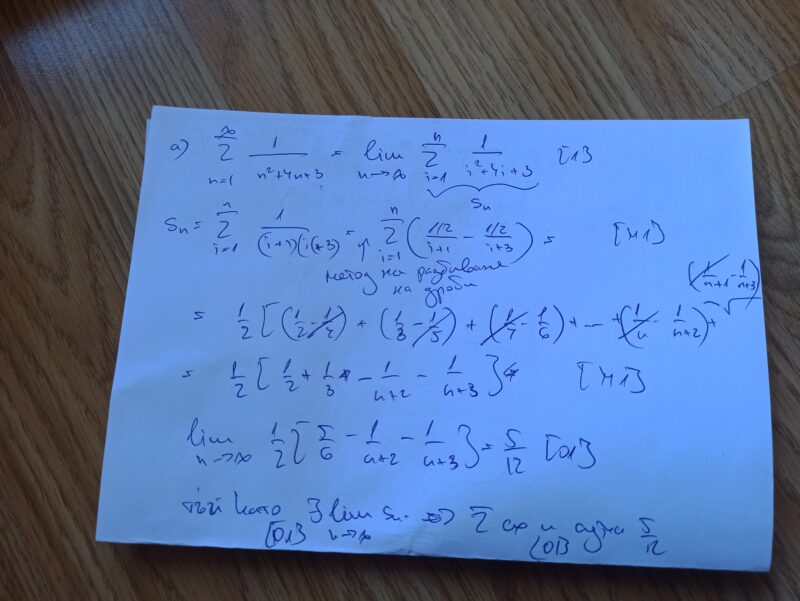 а) ∞ Σ n=1 1/(n²+4n+3) = lim n→∞ n Σ i=1 1/(i²+4i+3) [1]
Sn
Sn = n Σ i=1 1/((i+1)(i+3)) = n Σ i=1 ((1/2)/(i+1) - (1/2)/(i+3)) = [M1]
метод на разбиване
на дроби
= 1/2 [(1/2 - 1/4) + (1/3 - 1/5) + (1/4 - 1/6) + ... + (1/n - 1/(n+2)) + (1/(n+1) - 1/(n+3))
= 1/2 [1/2 + 1/3 - 1/(n+2) - 1/(n+3)] [M1]
lim n→∞ 1/2 [5/6 - 1/(n+2) - 1/(n+3)] = 5/12 [O1]
тъй като ∃ lim n→∞ Sn ⇒ Σ сх и сума 5/12
[O1] [O1]